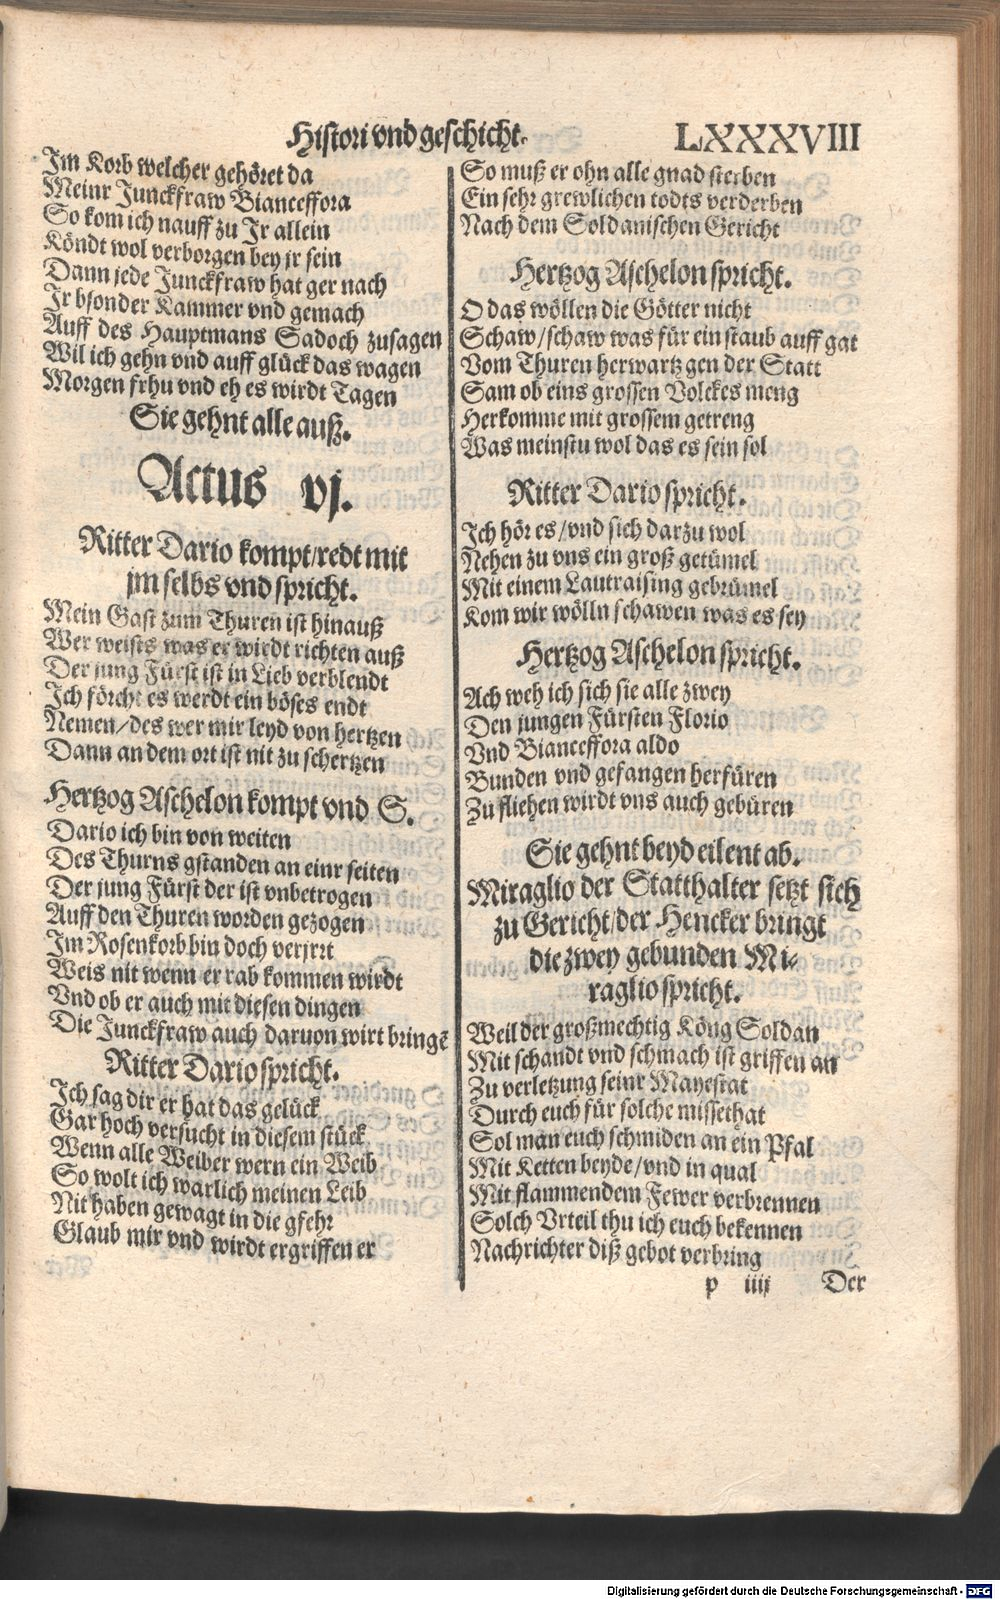 Histori vnd geschicht. LXXXVIII
Im Korb welcher gehöret da
Meinr Junckfraw Bianceffora
So kom ich nauff zu Ir allein
Köndt wol verborgen bey jr sein
Dann jede Junckfraw hat ger nach
Ir bsonder Kammer vnd gemach
Auff des Hauptmans Sadoch zusagen
Wil ich gehn vnd auff glück das wagen
Morgen frhu vnd eh es wirdt Tagen
Sie gehnt alle auß.
Actus vj.
Ritter Dario kompt/redt mit
jm selbs vnd spricht.
Mein Gast zum Thuren ist hinauß
Wer weists was er wirdt richten auß
Der jung Fürst ist in Lieb verblendt
Ich förcht es werdt ein böses endt
Nemen/des wer mir leyd von hertzen
Dann an dem ort ist nit zu schertzen
Hertzog Aschelon kompt vnd S.
Dario ich bin von weiten
Des Thurns gstanden an einr seiten
Der jung Fürst der ist vnbetrogen
Auff den Thuren worden gezogen
Im Rosenkorb bin doch verjrrt
Weis nit wenn er rab kommen wirdt
Vnd ob er auch mit diesen dingen
Die Junckfraw auch daruon wirt bringē
Ritter Dario spricht.
Ich sag dir er hat das gelück
Gar hoch versucht in diesem stück
Wenn alle Weiber wern ein Weib
So wolt ich warlich meinen Leib
Nit haben gewagt in die gfehr
Glaub mir vnd wirdt ergriffen er
So muß er ohn alle gnad sterben
Ein sehr grewlichen todts verderben
Nach dem Soldanischen Gericht
Hertzog Aschelon spricht.
O das wöllen die Götter nicht
Schaw/schaw was für ein staub auff gat
Vom Thuren herwartz gen der Statt
Sam ob eins grossen Volckes meng
Herkomme mit grossem getreng
Was meinstu wol das es sein sol
Ritter Dario spricht.
Ich hör es/vnd sich darzu wol
Nehen zu vns ein groß getümel
Mit einem Lautraising gebrümel
Kom wir wölln schawen was es sey
Hertzog Aschelon spricht.
Ach weh ich sich sie alle zwey
Den jungen Fürsten Florio
Vnd Bianceffora aldo
Bunden vnd gefangen herfüren
Zu fliehen wirdt vns auch gebüren
Sie gehnt beyd eilent ab.
Miraglio der Statthalter setzt sich
zu Gericht/der Hencker bringt
die zwey gebunden Mi-
raglio spricht.
Weil der großmechtig Köng Soldan
Mit schandt vnd schmach ist griffen an
Zu verletzung seinr Mayestat
Durch euch für solche missethat
Sol man euch schmiden an ein Pfal
Mit Ketten beyde/vnd in qual
Mit flammendem Fewer verbrennen
Solch Vrteil thu ich euch bekennen
Nachrichter diß gebot verbring
p iiij Der
Digitalisierung gefördert durch die Deutsche Forschungsgemeinschaft - DFG